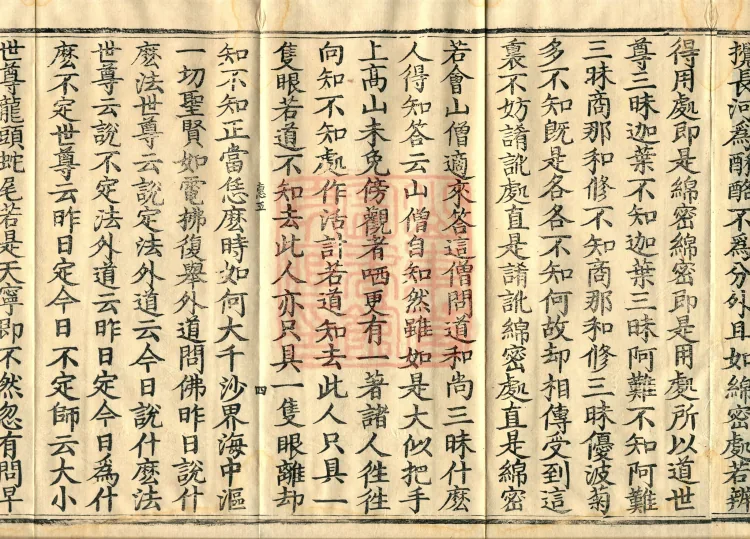 攪長河為酥酪不為分外且如綿密處若辨
得用處即是綿密綿密即是用處所以道世
尊三昧迦葉不知迦葉三昧阿難不知阿難
三昧商那和修不知商那和修三昧優波菊
多不知既是各各不知何故却相傳受到這
裏不妨誵訛處直是誵訛綿密處直是綿密
若會山僧適來答這僧問道和尚三昧什麽
人得知答云山僧自知然雖如是大似把手
上高山未免傍觀者哂更有一著諸人徃徃
向知不知處作活計若道知去此人只具一
隻眼若道不知去此人亦只具一隻眼離却
惠五
四
知不知正當恁麽時如何大千沙界海中漚
一切聖賢如電拂復舉外道問佛昨日說什
麽法世尊云說定法外道云今日說什麽法
世尊云說不定法外道云昨日定今日為什
麽不定世尊云昨日定今日不定師云大小
世尊龍頭蛇尾若是天寧即不然忽有問早